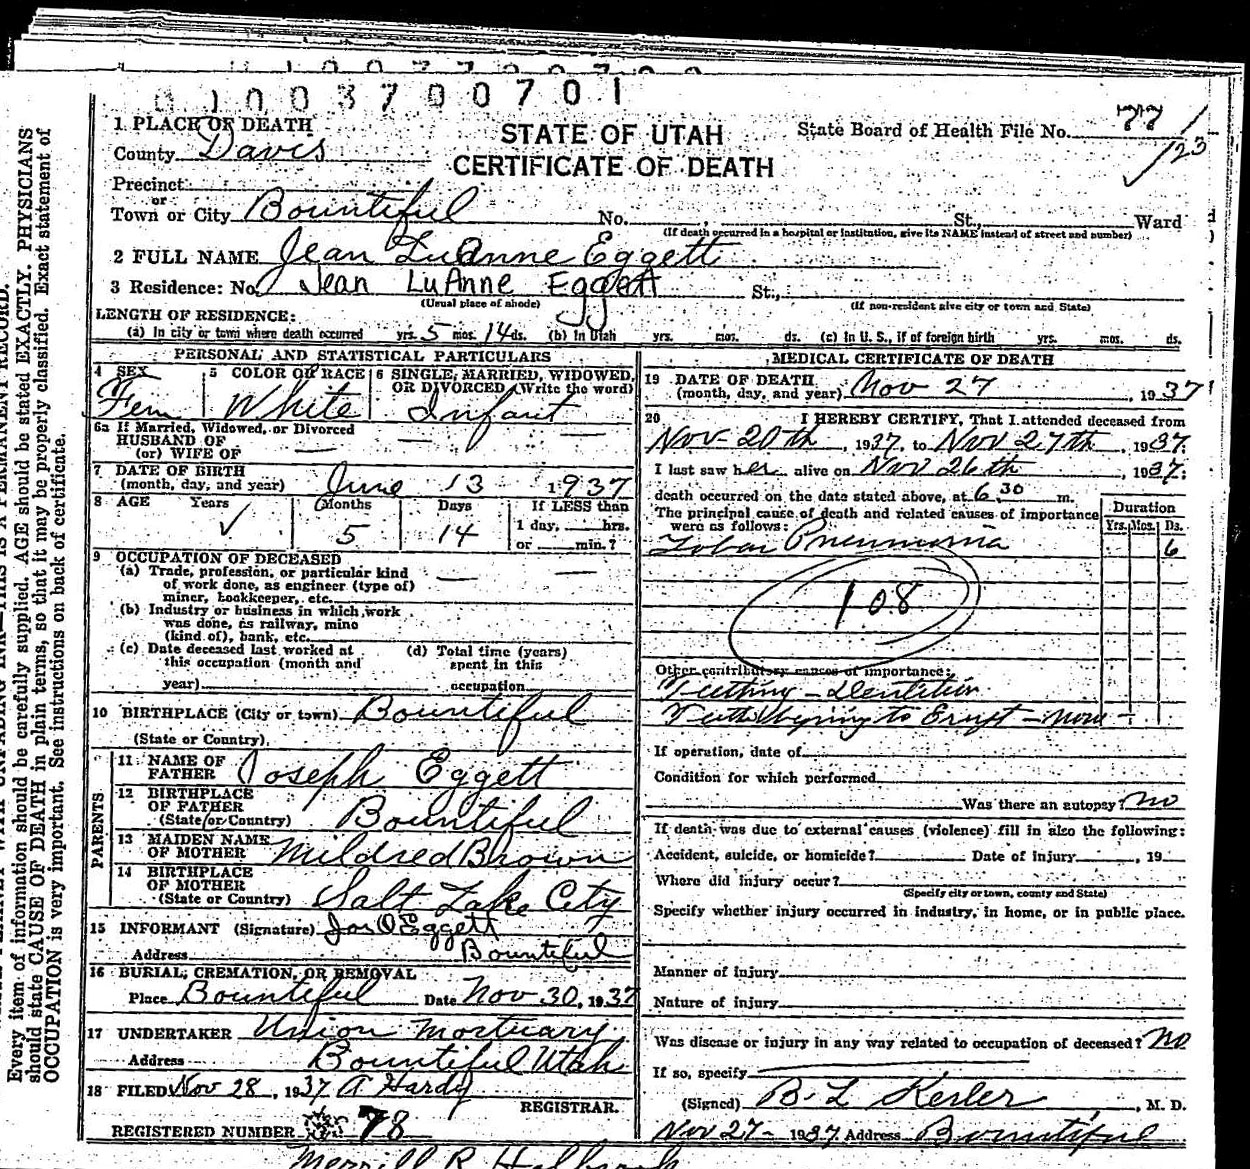 0 1 0 0 3 7 0 0 7 0 1
1 PLACE OF DEATH
County Davis
STATE OF UTAH
CERTIFICATE OF DEATH
State Board of Health File No. 77
123
Precinct
or
Town or City Bountiful No. St., Ward
(If death occurred in a hospital or institution, give its NAME instead of street and number)
2 FULL NAME Jean LuAnne Eggett
3 Residence: No. Jean LuAnne Eggett St.,
(Usual place of abode) (If non-resident give city or town and State)
LENGTH OF RESIDENCE:
(a) In city or town where death occurred yrs. 5 mos. 14 ds. (b) In Utah yrs. mos. ds. (c) In U. S., if of foreign birth yrs. mos. ds.
PERSONAL AND STATISTICAL PARTICULARS
4 SEX 5 COLOR OR RACE 6 SINGLE, MARRIED, WIDOWED, OR DIVORCED (Write the word)
Fem White Infant
6a If Married, Widowed, or Divorced
HUSBAND OF
(or) WIFE OF
7 DATE OF BIRTH
(month, day, and year) June 13 1937
8 AGE Years Months Days If LESS than
✓ 5 14 1 day, hrs.
or min.?
9 OCCUPATION OF DECEASED
(a) Trade, profession, or particular kind
of work done, as engineer (type of)
miner, bookkeeper, etc.
(b) Industry or business in which work
was done, as railway, mine
(kind of), bank, etc.
(c) Date deceased last worked at
this occupation (month and
year)
(d) Total time (years)
spent in this
occupation
10 BIRTHPLACE (City or town) Bountiful
(State or Country)
PARENTS
11 NAME OF
FATHER Joseph Eggett
12 BIRTHPLACE
OF FATHER
(State or Country) Bountiful
13 MAIDEN NAME
OF MOTHER Mildred Brown
14 BIRTHPLACE
OF MOTHER
(State or Country) Salt Lake City
15 INFORMANT (Signature) Jos O Eggett
Address Bountiful
16 BURIAL, CREMATION, OR REMOVAL
Place Bountiful Date Nov 30, 1937
17 UNDERTAKER Union Mortuary
Address Bountiful Utah
18 FILED Nov 28, 1937 A Hardy
REGISTRAR.
REGISTERED NUMBER 78
MEDICAL CERTIFICATE OF DEATH
19 DATE OF DEATH
(month, day, and year) Nov 27, 1937
20 I HEREBY CERTIFY, That I attended deceased from
Nov 20th, 1937, to Nov 27th, 1937.
I last saw her alive on Nov 26th 1937.
death occurred on the date stated above, at 6 30 m.
The principal cause of death and related causes of importance
were as follows:
Duration
Yrs. Mos. Ds.
Lobar Pneumonia 6
108
Other contributory causes of importance:
Teething - Dentition
Teeth trying to Erupt - now -
If operation, date of
Condition for which performed
Was there an autopsy? no
If death was due to external causes (violence) fill in also the following:
Accident, suicide, or homicide? Date of injury , 19
Where did injury occur?
(Specify city or town, county and State)
Specify whether injury occurred in industry, in home, or in public place.
Manner of injury
Nature of injury
Was disease or injury in any way related to occupation of deceased? No
If so, specify
(Signed) B. L. Kesler, M. D.
Nov 27 - 1937 Address Bountiful
Every item of information should be carefully supplied. AGE should be stated EXACTLY. PHYSICIANS
should state CAUSE OF DEATH in plain terms, so that it may be properly classified. Exact statement of
OCCUPATION is very important. See instructions on back of certificate.